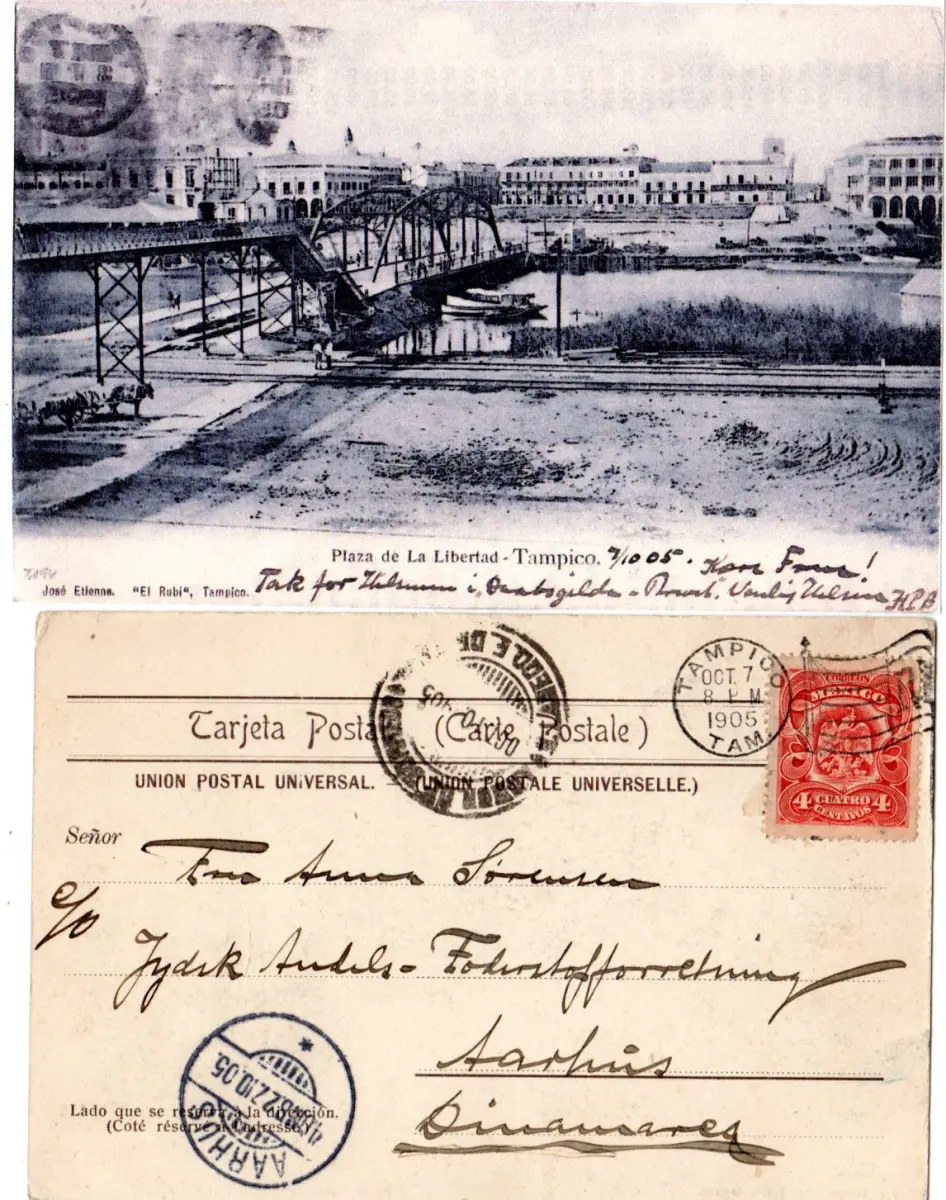 Plaza de La Libertad - Tampico. 7/10 05. Kære Frue!
José Etienne. "El Rubí", Tampico. Tak for Hilsenen i
HPB
TAMPICO
OCT. 7
8 PM
1905
TAM.
CORREOS
MEXICO
4 CUATRO 4
CENTAVOS
Tarjeta Postal (Carte Postale)
UNION POSTAL UNIVERSAL. - (UNION POSTALE UNIVERSELLE.)
Señor
Fru Anna Sørensen
c/o
Jydsk Andels-Foderstofforretning
Aarhus
Dinamarca
Lado que se reserva á la dirección.
(Coté réservé à l'adresse.)
AARHUS
27.10.05